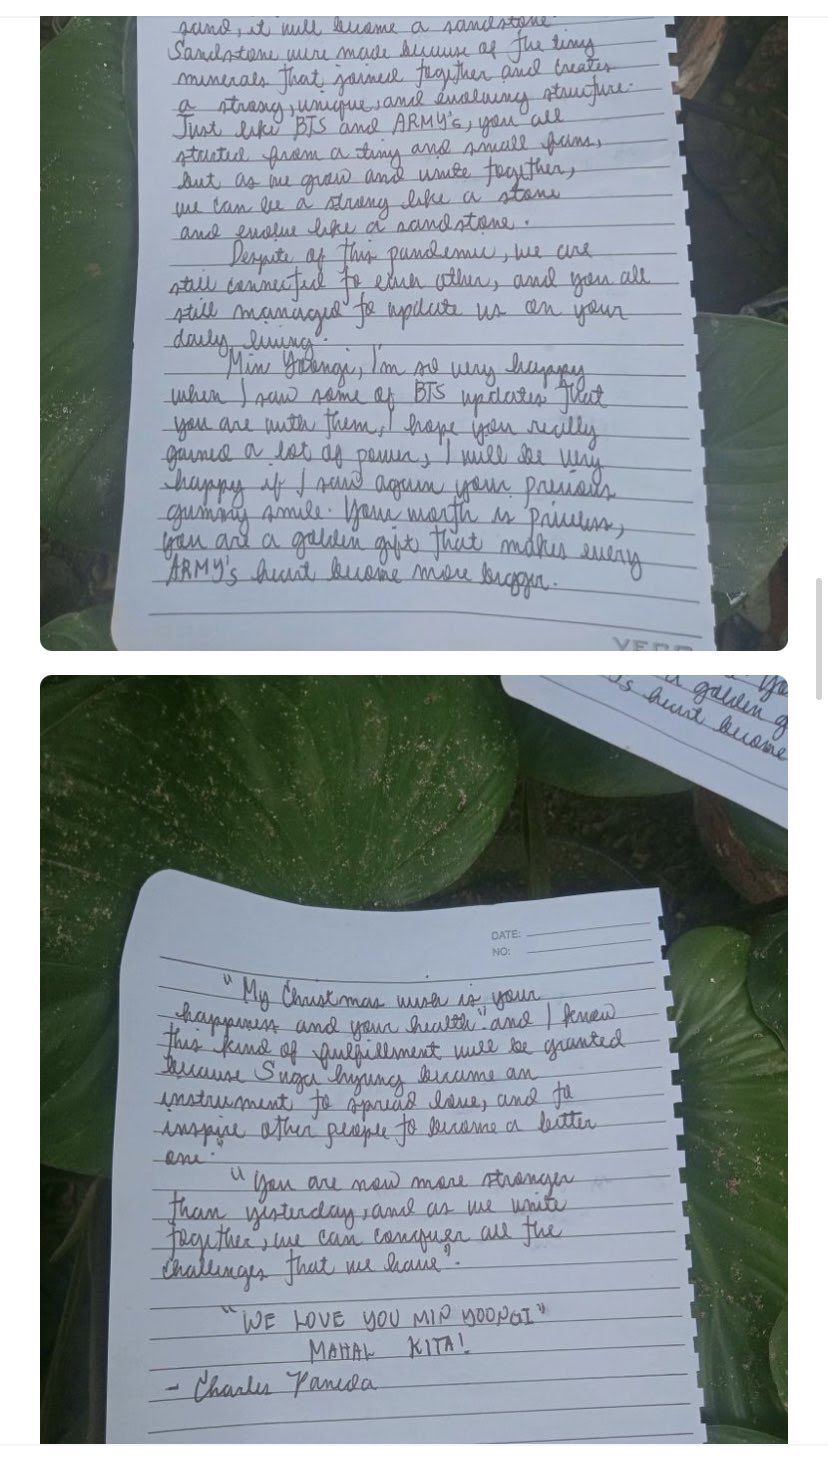 sand, it will become a sandstone.
Sandstone were made because of the tiny
minerals that joined together and creates
a strong, unique, and evolving structure.
Just like BTS and ARMY's, you all
started from a tiny and small fans,
but as we grow and unite together,
we can be a strong like a stone
and evolve like a sandstone.
Despite of this pandemic, we are
still connected to each other, and you all
still managed to update us on your
daily living.
Min Yoongi, I'm so very happy
when I saw some of BTS updates that
you are with them, I hope you really
gained a lot of power, I will be very
happy if I saw again your precious
gummy smile. Your worth is priceless,
you are a golden gift that makes every
ARMY's heart become more bigger.
golden g
heart become
DATE:
NO:
"My Christmas wish is your
happiness and your health" and I know
this kind of fulfillment will be granted
because Suga hyung became an
instrument to spread love, and to
inspire other people to become a better
one."
"You are now more stronger
than yesterday, and as we unite
together, we can conquer all the
challenges that we have".
"WE LOVE YOU MIN YOONGI"
MAHAL KITA!
- Charles